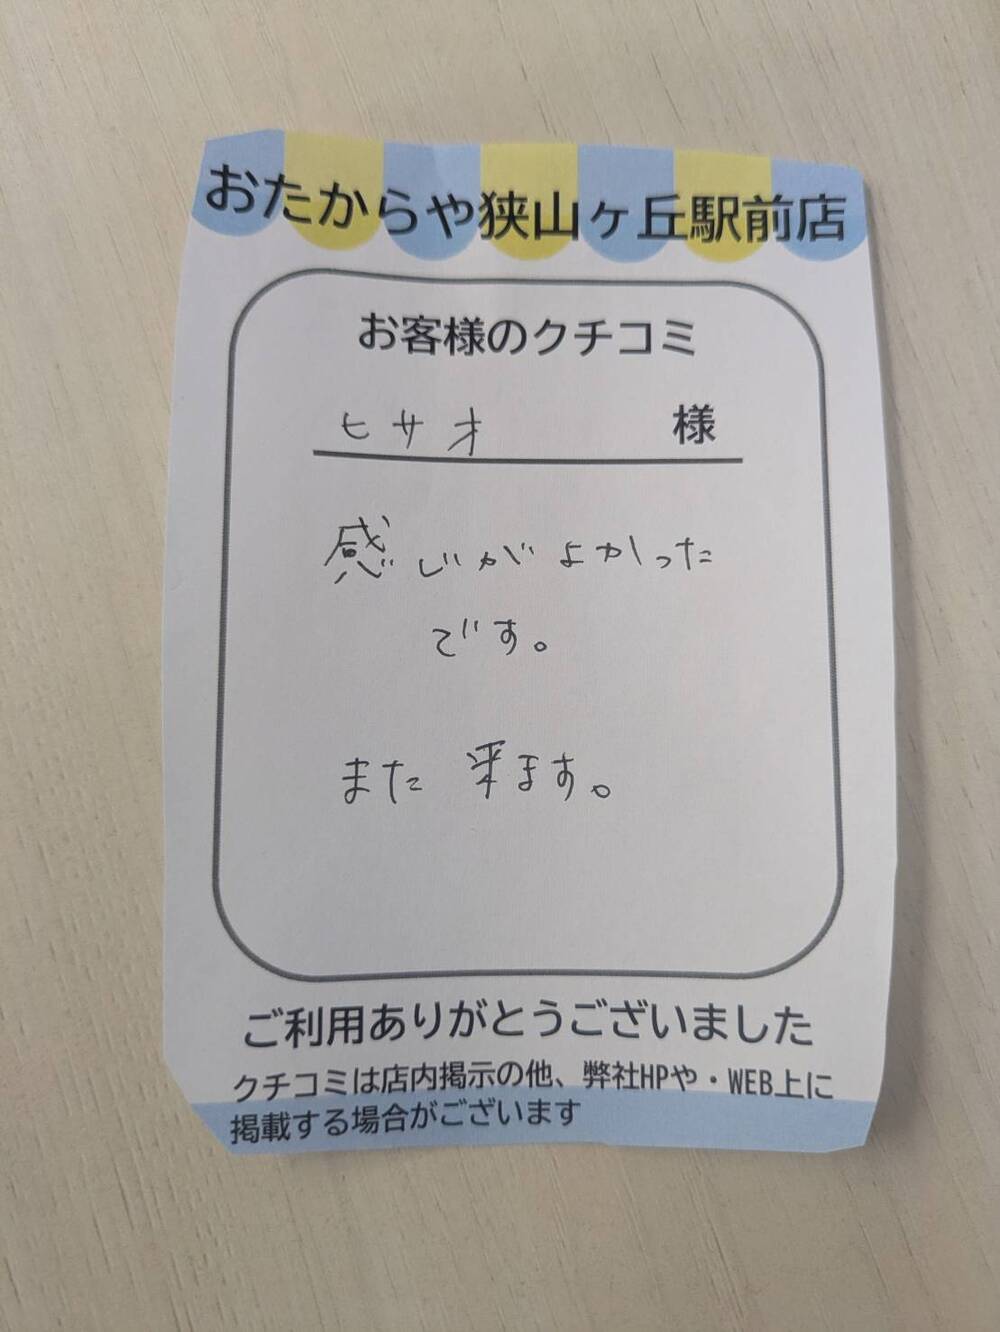 おたからや狭山ヶ丘駅前店
お客様のクチコミ
ヒサオ 様
感じがよかった
です。
また来ます。
ご利用ありがとうございました
クチコミは店内掲示の他、弊社HPや・WEB上に
掲載する場合がございます